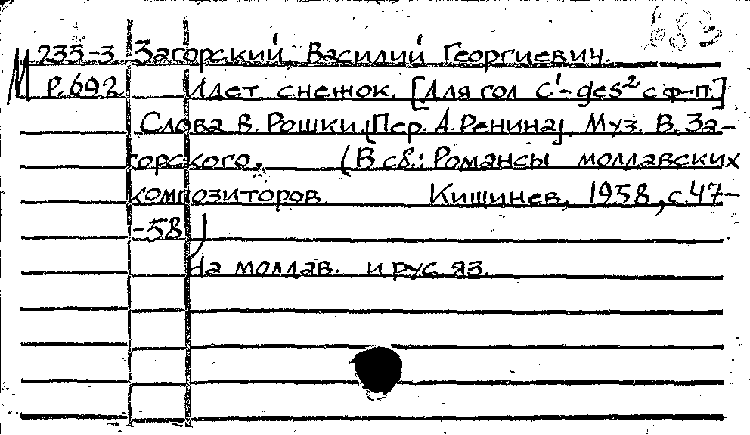 683
М 235-3 Загорский, Василий Георгиевич.
Р.692 Идет снежок. [Для гол c¹-ges² с ф-п.]
Слова В. Рошки. [Пер. А. Ренина]. Муз. В. За-
горского. (В сб.: Романсы молдавских
композиторов. Кишинев, 1958, с.47-
-58)
На молдав. и рус. яз.